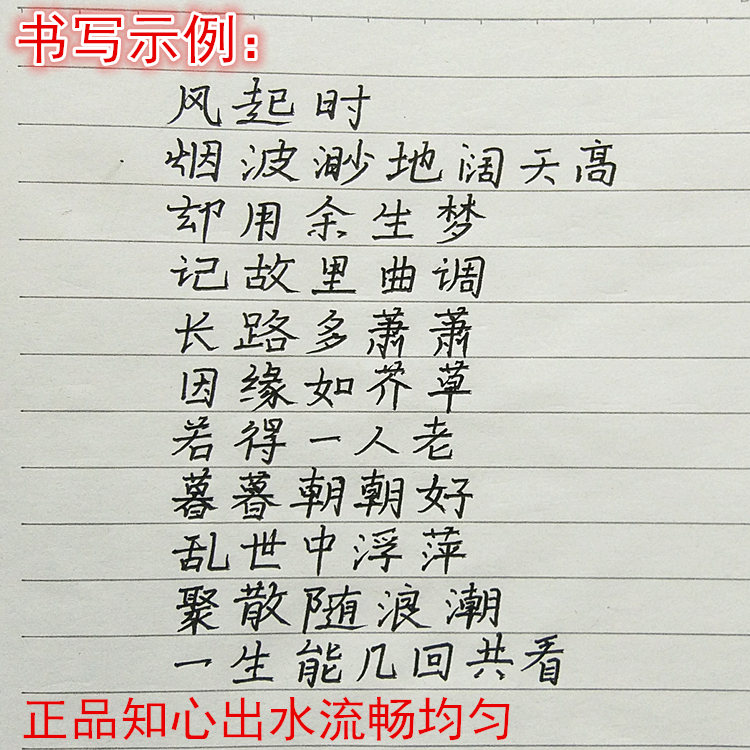 书写示例：
风起时
烟波渺地阔天高
却用余生梦
记故里曲调
长路多萧萧
因缘如芥草
若得一人老
暮暮朝朝好
乱世中浮萍
聚散随浪潮
一生能几回共看
正品知心出水流畅均匀